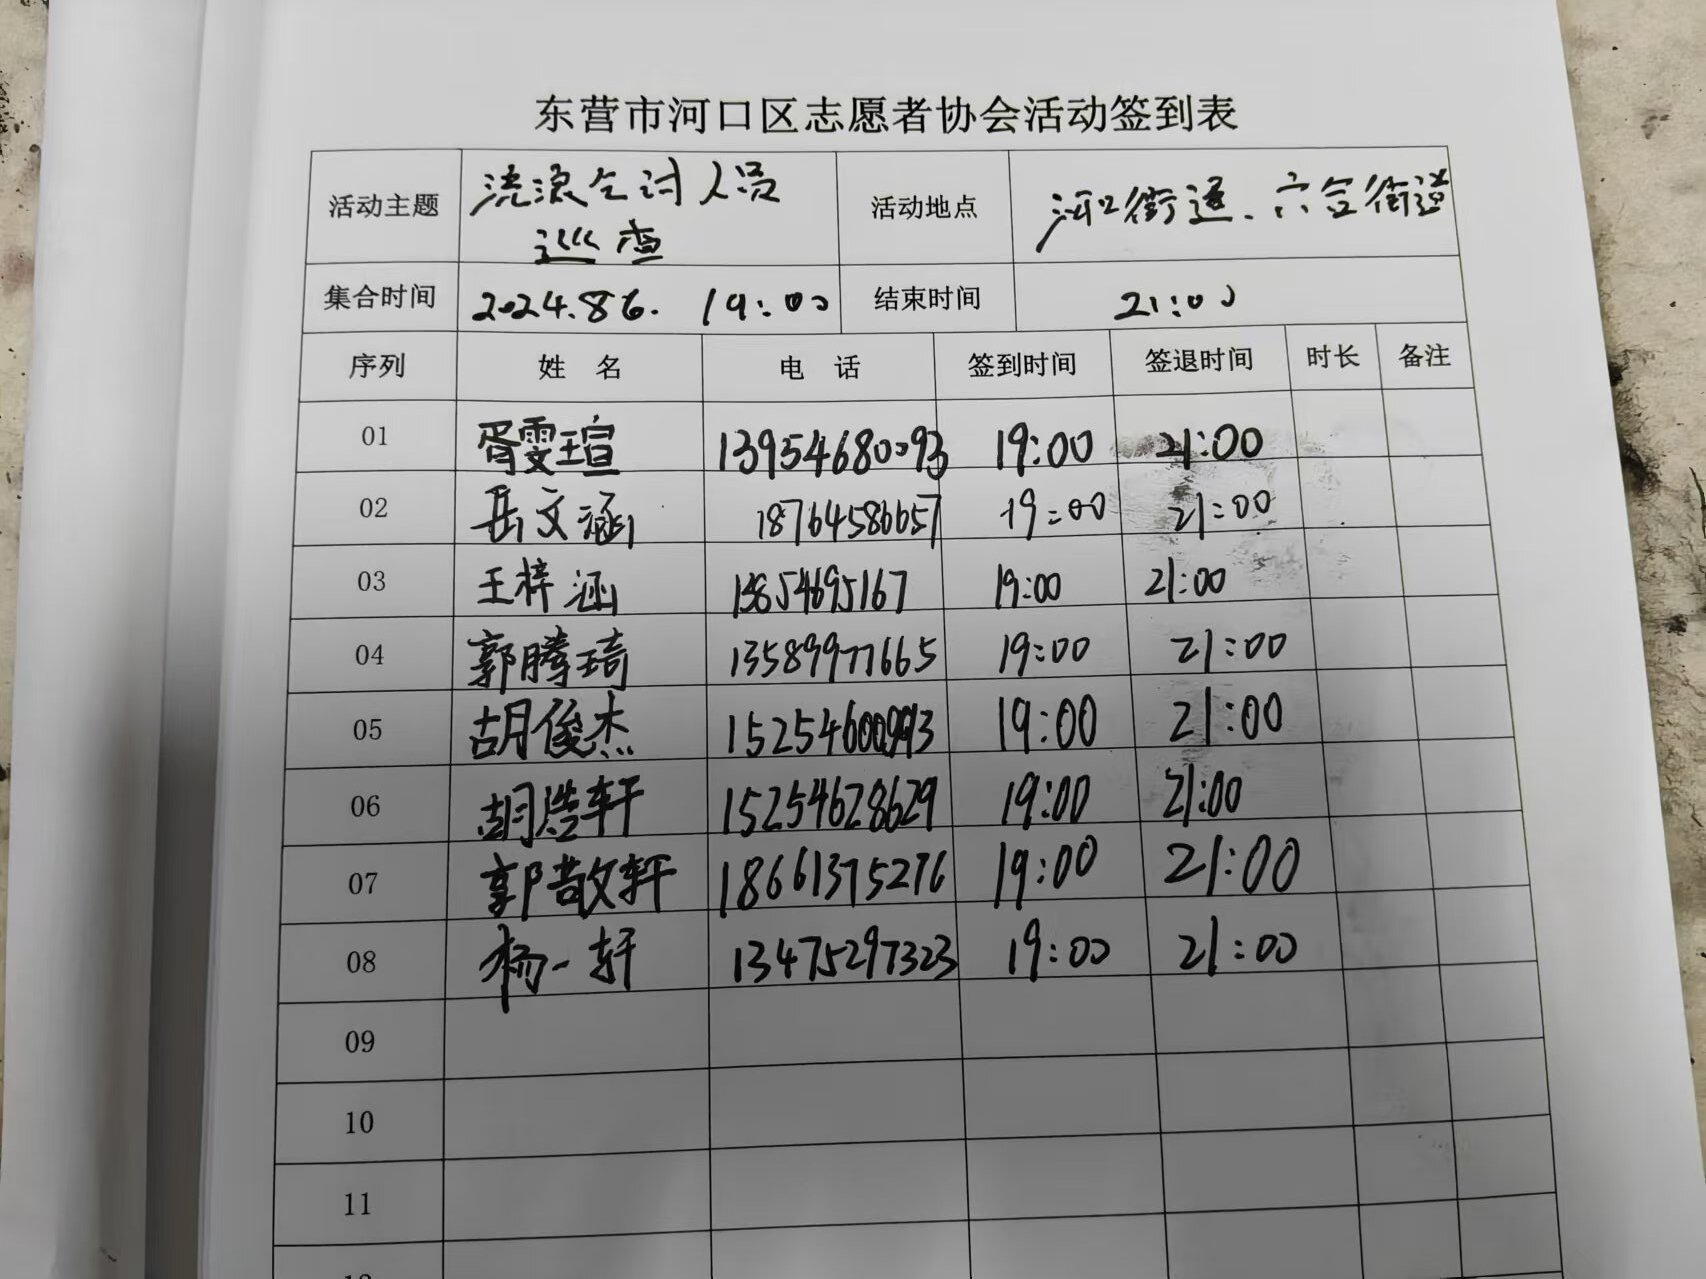 东营市河口区志愿者协会活动签到表
活动主题 流浪乞讨人员巡查 活动地点 河口街道、六合街道
集合时间 2024.8.6. 19:00 结束时间 21:00
序列 姓 名 电 话 签到时间 签退时间 时长 备注
01 胥雯瑄 13954680093 19:00 21:00
02 岳文涵 18764586657 19:00 21:00
03 王梓涵 13854695167 19:00 21:00
04 郭腾琦 13589977665 19:00 21:00
05 胡俊杰 19:00 21:00
06 胡浩轩 15254628629 19:00 21:00
07 郭敬轩 18661375276 19:00 21:00
08 杨一轩 13475297323 19:00 21:00
09
10
11